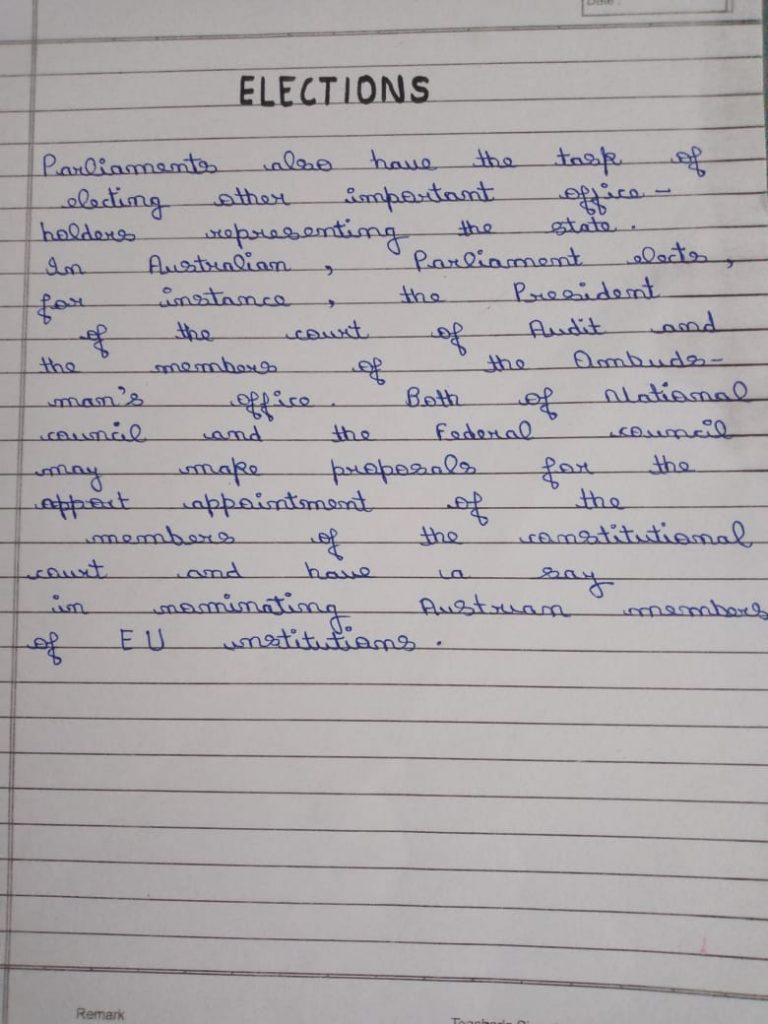 ELECTIONS
Parliaments also have the task of
electing other important office-
holders representing the state.
In Australian, Parliament elects,
for instance, the President
of the court of Audit and
the members of the Ombuds-
man's office. Both of National
council and the Federal council
may make proposals for the
apport appointment of the
members of the constitutional
court and have a say
in nominating Austruan members
of EU institutions.
Remark